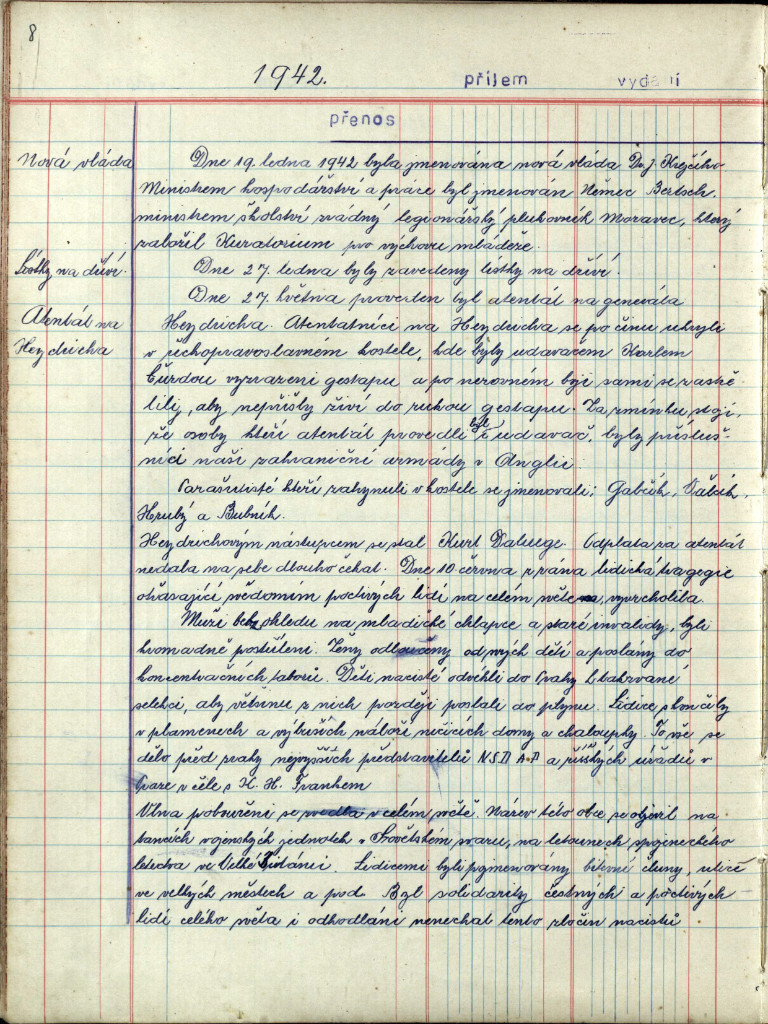 8
1942. příjem vydání
přenos
Nová vláda
Dne 19. ledna 1942 byla jmenována nová vláda Dr. J. Krejčího
Ministrem hospodářství a práce byl jmenován Němec Bertsch.
ministrem školství zrádný legionářský plukovník Moravec, který
založil Kuratorium pro výchovu mládeže.
Lístky na dříví.
Dne 27. ledna byly zavedeny lístky na dříví.
Atentát na
Heydricha
Dne 27. května proveden byl atentát na generála
Heydricha. Atentátníci na Heydricha se po činu ukryli
v řeckopravoslavném kostele, kde byly udavačem Karlem
Čurdou vyzrazeni gestapu a po nerovném boji sami se zastře-
lili, aby nepřišly živí do rukou gestapu. Za zmínku stojí,
že osoby kteří atentát provedli byl i udavač, byly přísluš-
níci naší zahraniční armády v Anglii.
Parašutisté kteří zahynuli v kostele se jmenovali; Gabčík,
Hrubý a Bublík.
Heydrichovým nástupcem se stal Kurt Daluege. Odplata za atentát
nedala na sebe dlouho čekat. Dne 10 června z rána lidická tragegie
otřásající vědomím poctivých lidí na celém světe, vyvrcholila.
Muži bez ohledu na mladičké chlapce a staré invalidy, byli
hromadně postříleni. Ženy odloučeny od svých dětí a poslány do
koncentračních táborů. Děti nacisté odvékli do Prahy k takzvané
selekci, aby většinu z nich později poslali do plynu. Lidice skončily
v plamenech a výbuších náloží ničících domy a chaloupky. To vše se
dělo před zraky nejvyšších představitelů N.S.D.A.P a říšských úřadů v
Praze v čele s K. H. Frankem
Vlna pobouření se zvedla v celém světě. Název této obce se objevil na
tancích vojenských jednotek v Sovětském svazu, na letounech spojeneckého
letectva ve Velké Británii. Lidicemi byli pojmenovány bitevní čluny, ulice
ve velkých městech a pod. Byl solidarity čestných a poctivých
lidí celého světa i odhodlání nenechat tento zločin nacistů